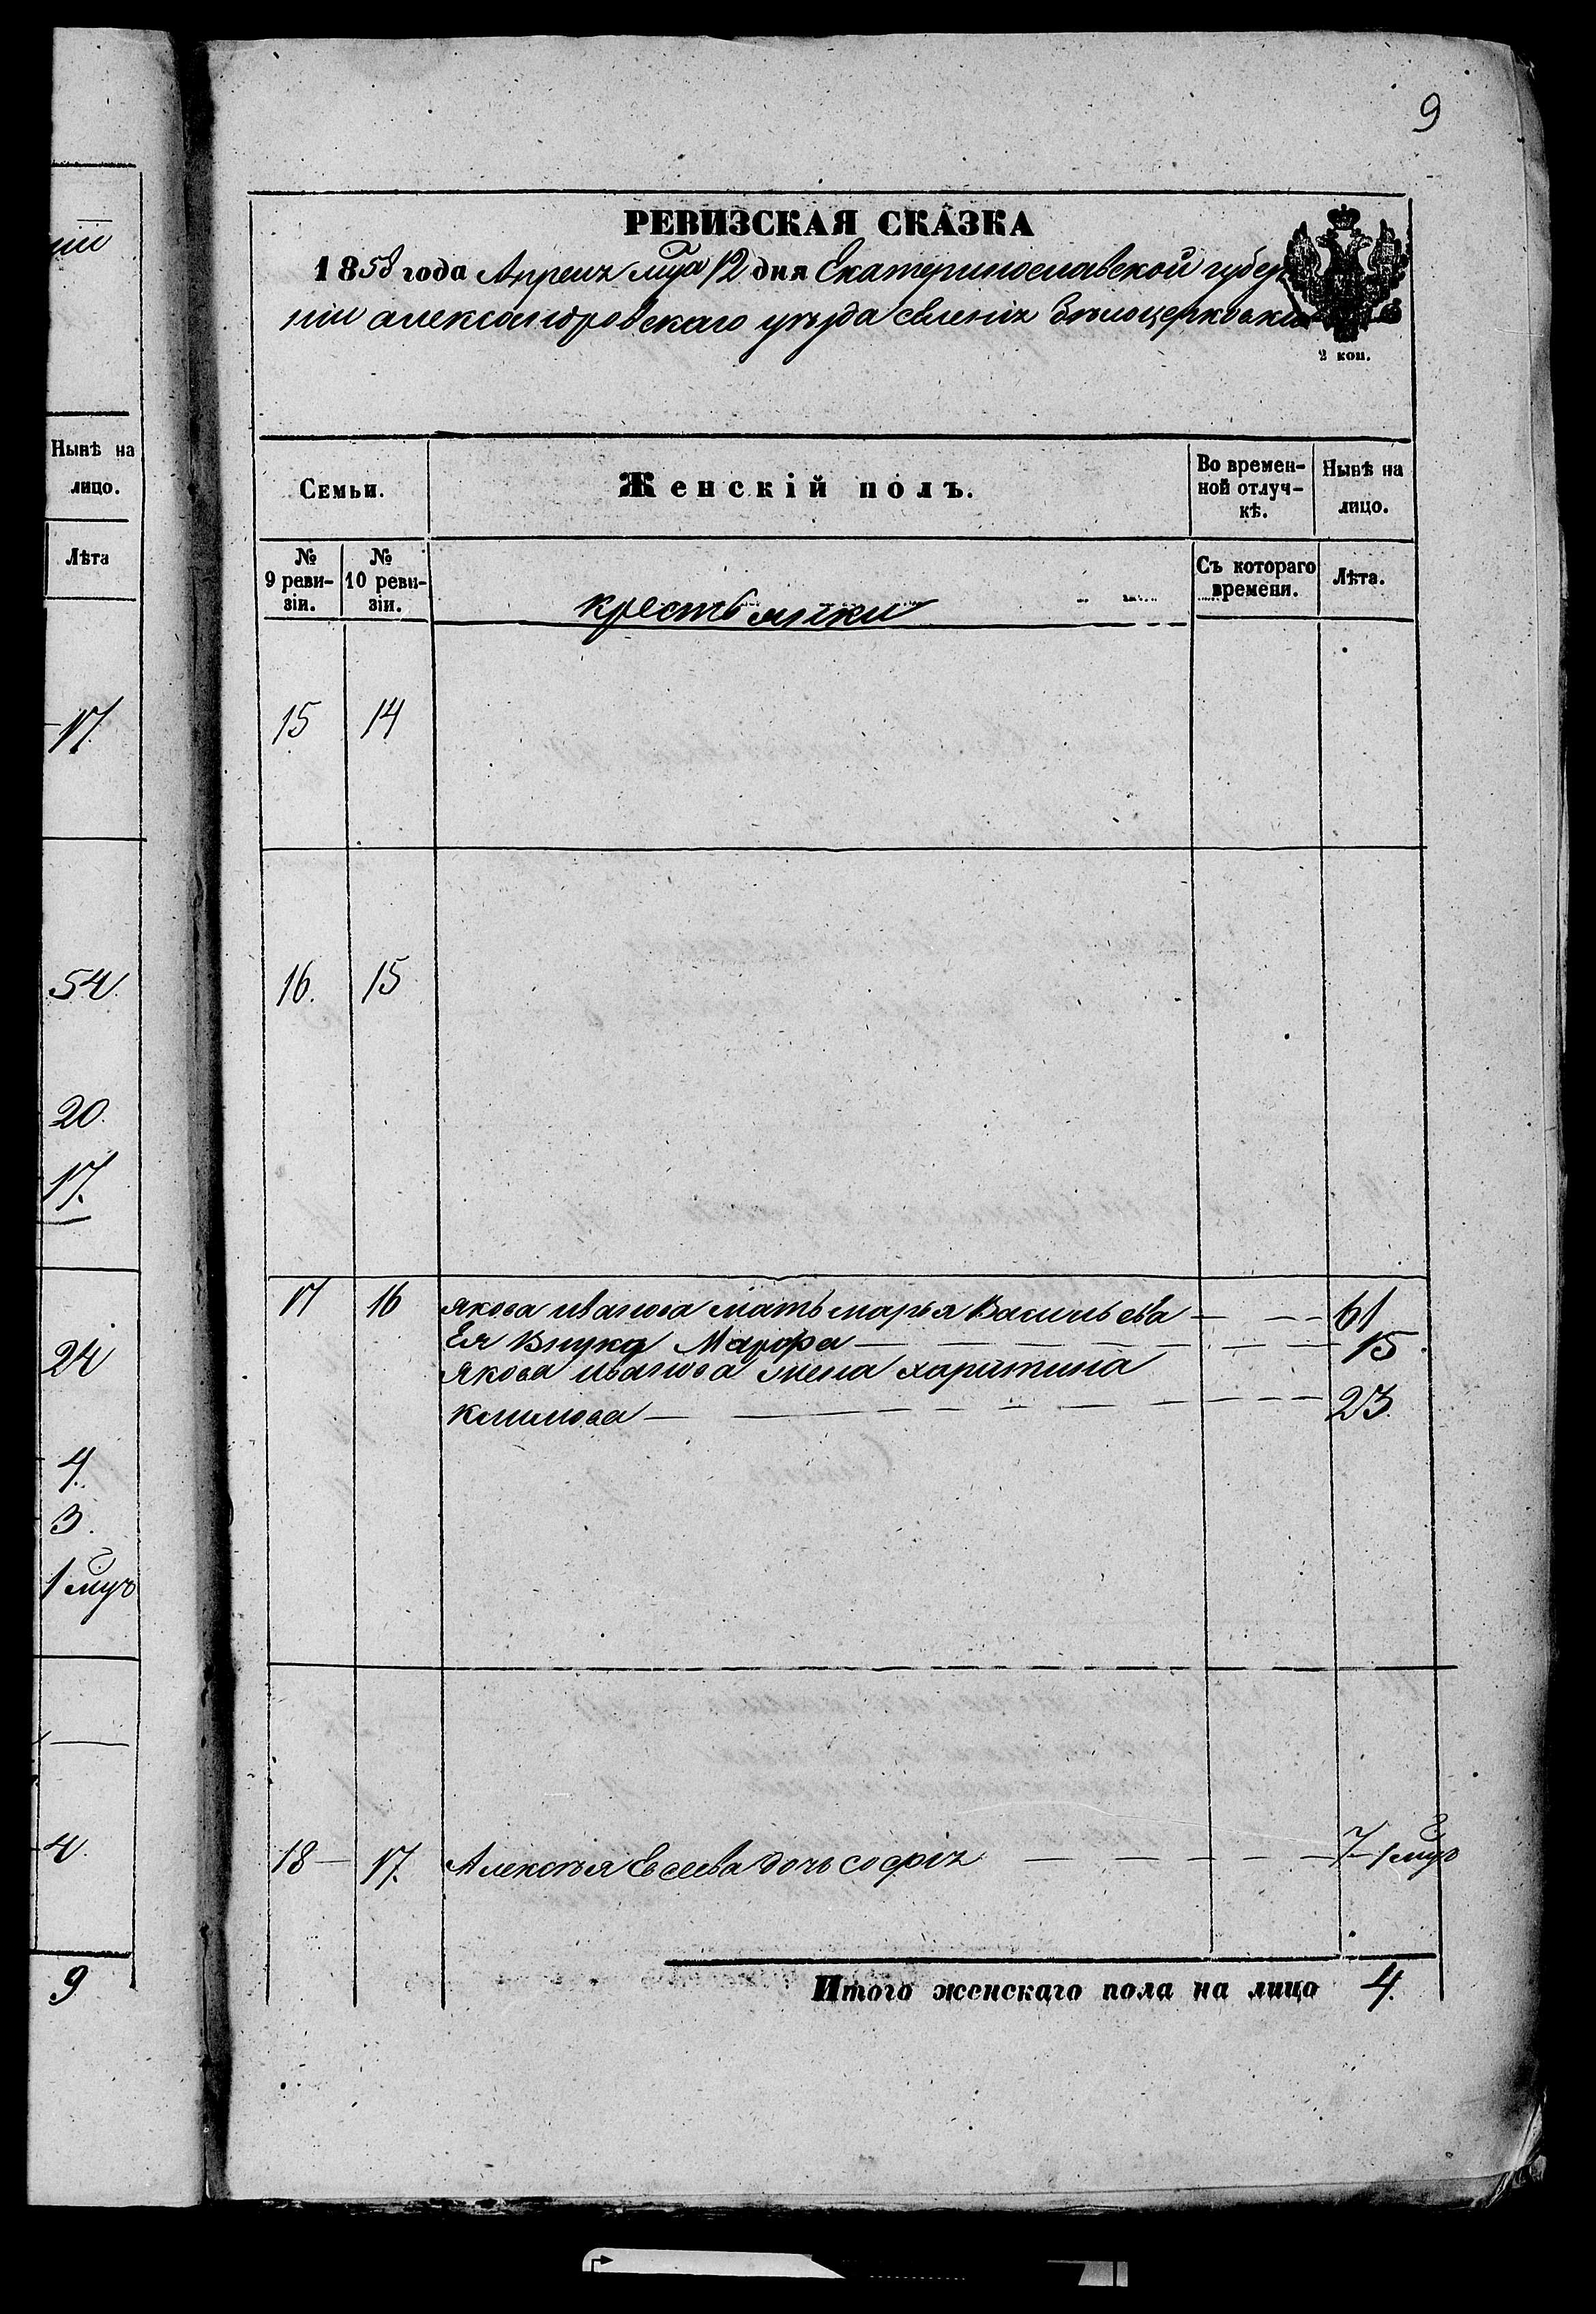 ніи
Нынѣ на
лицо.
Лѣта
17
54
20.
17.
24
4.
3.
1 мцъ
4.
9
9
РЕВИЗСКАЯ СКАЗКА
1858 года Апреля мца 12 дня Екатеринославской губер
2 коп.
ніи александровскаго уезда селенія Бѣлоцерковки
Семьи.
Женскій полъ.
Во времен-
ной отлуч-
кѣ.
Нынѣ на
лицо.
№
9 реви-
зіи.
№
10 реви-
зіи.
крестьянки
Съ котораго
времени.
Лѣта.
15 14
16. 15
17 16 якова иванова мать марья Васильева 61
Ея Внука Марфа 15
Якова иванова жена харитина
климова 23.
18 17. Алексѣя Евсеева дочь софія 7 1 мцъ
Итого женскаго пола на лицо 4.